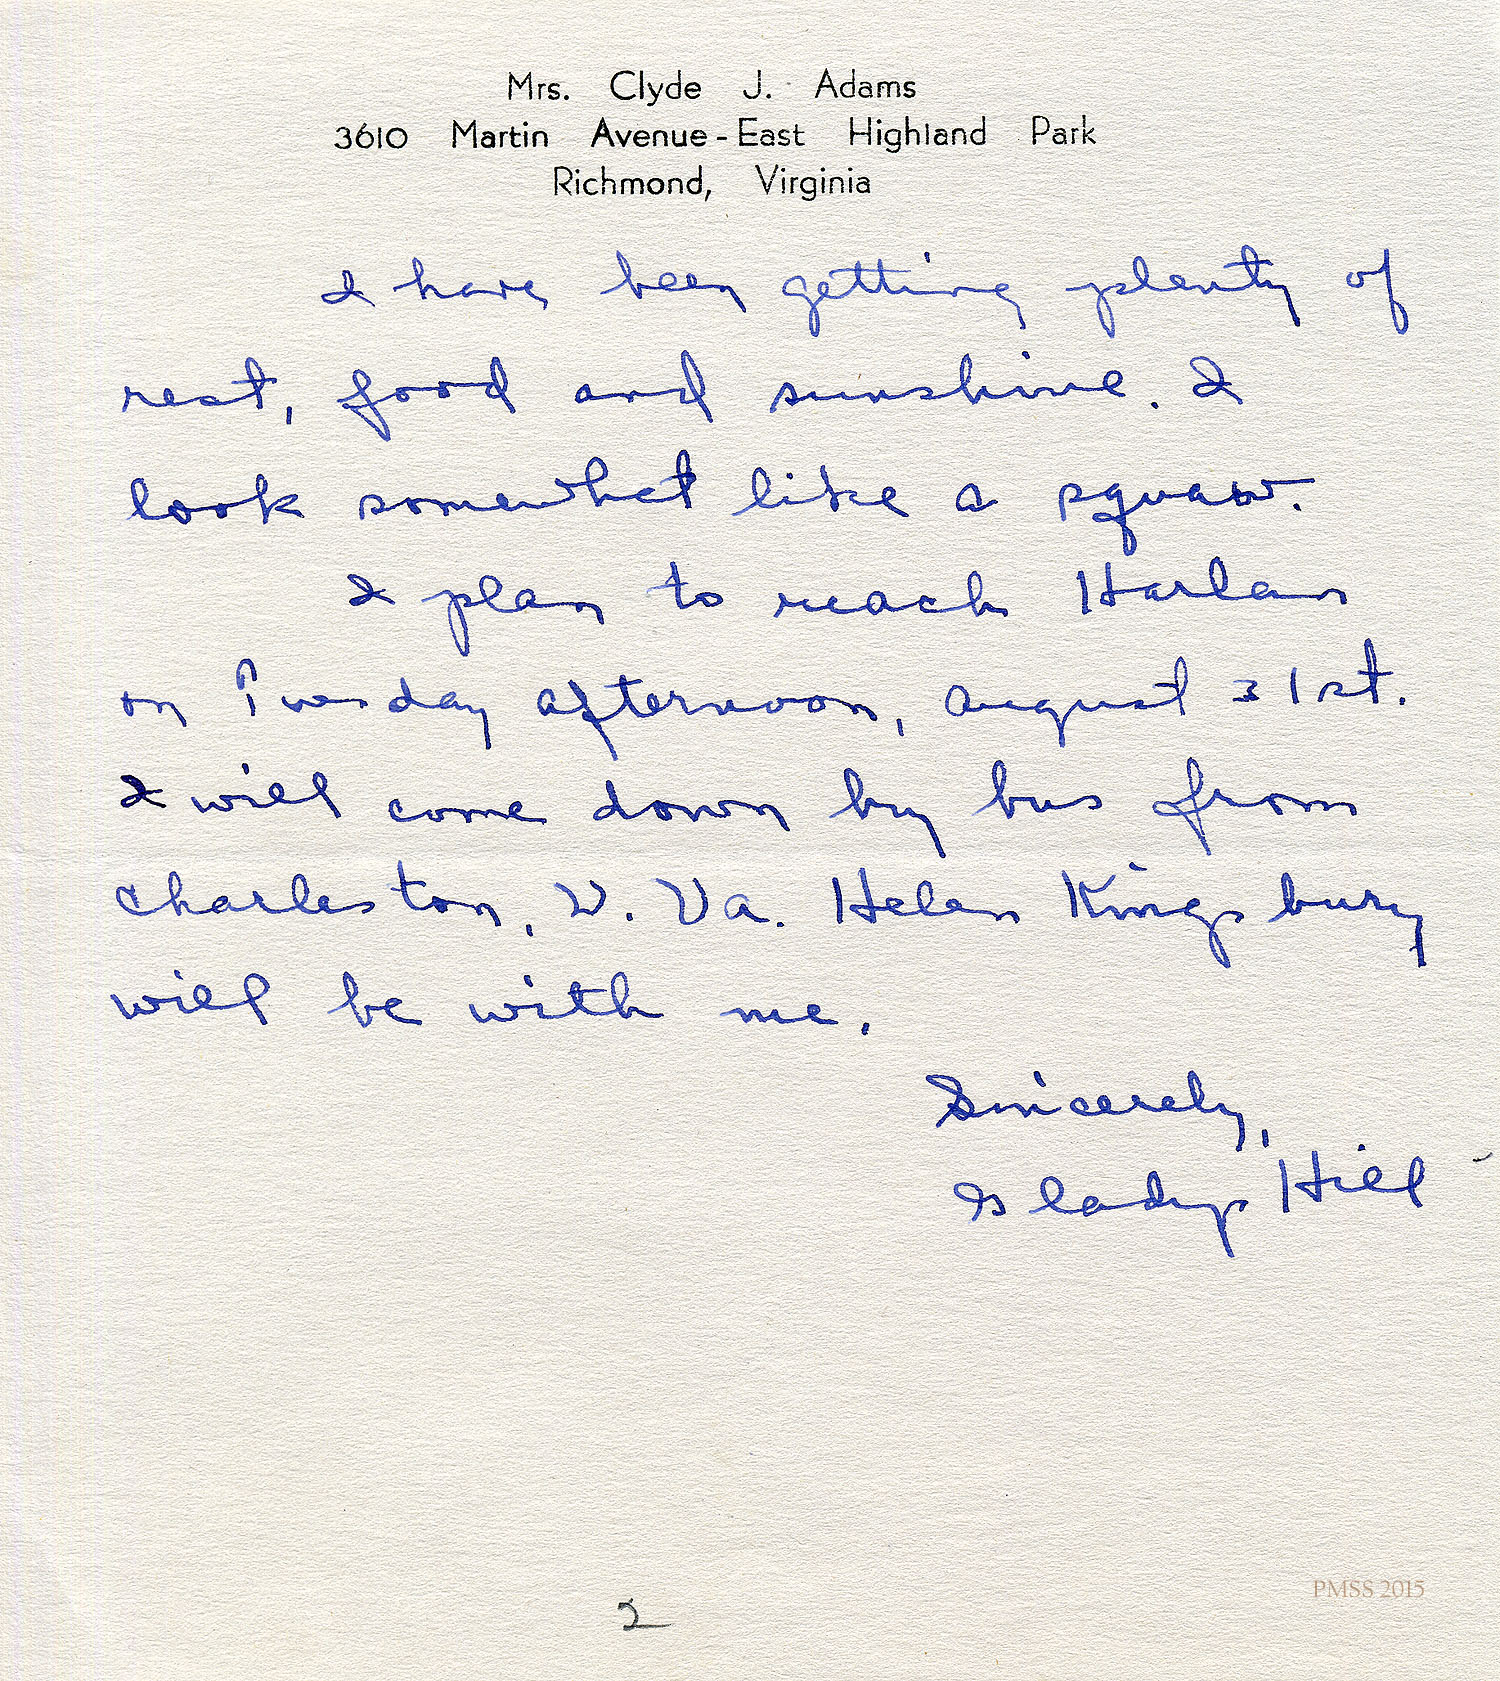 Mrs. Clyde J. Adams
3610 Martin Avenue - East Highland Park
Richmond, Virginia
I have been getting plenty of
rest, food and sunshine. I
look somewhat like a squaw.
I plan to reach Harlan
on Tuesday afternoon, August 31st.
I will come down by bus from
Charleston, W. Va. Helen Kingsbury
will be with me.
Sincerely,
Gladys Hill
2
PMSS 2015